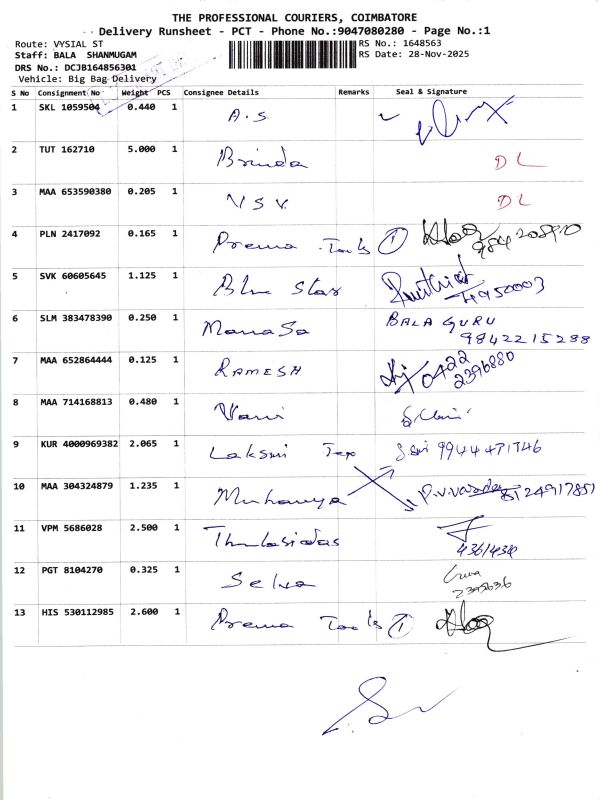 THE PROFESSIONAL COURIERS, COIMBATORE
Delivery Runsheet - PCT - Phone No.:9047080280 - Page No.:1
Route: VYSIAL ST RS No.: 1648563
Staff: BALA SHANMUGAM RS Date: 28-Nov-2025
DRS No.: DCJB164856301
Vehicle: Big Bag Delivery
S No Consignment No Weight PCS Consignee Details Remarks Seal & Signature
1 SKL 1059504 0.440 1 A.S
2 TUT 162710 5.000 1 Brinda DL
3 MAA 653590380 0.205 1 V S V. DL
4 PLN 2417092 0.165 1 Prema Tools 1
5 SVK 60605645 1.125 1 Blue Star 4950003
6 SLM 383478390 0.250 1 ManaSa BALA GURU
9842215288
7 MAA 652864444 0.125 1 RAMESH 0422
2396880
8 MAA 714168813 0.480 1 Vani
9 KUR 4000969382 2.065 1 Laksmi Tex 9944471746
10 MAA 304324879 1.235 1
11 VPM 5686028 2.500 1 Thulasidas
12 PGT 8104270 0.325 1 Selva
2395636
13 HIS 530112985 2.600 1 Prema Tools 1